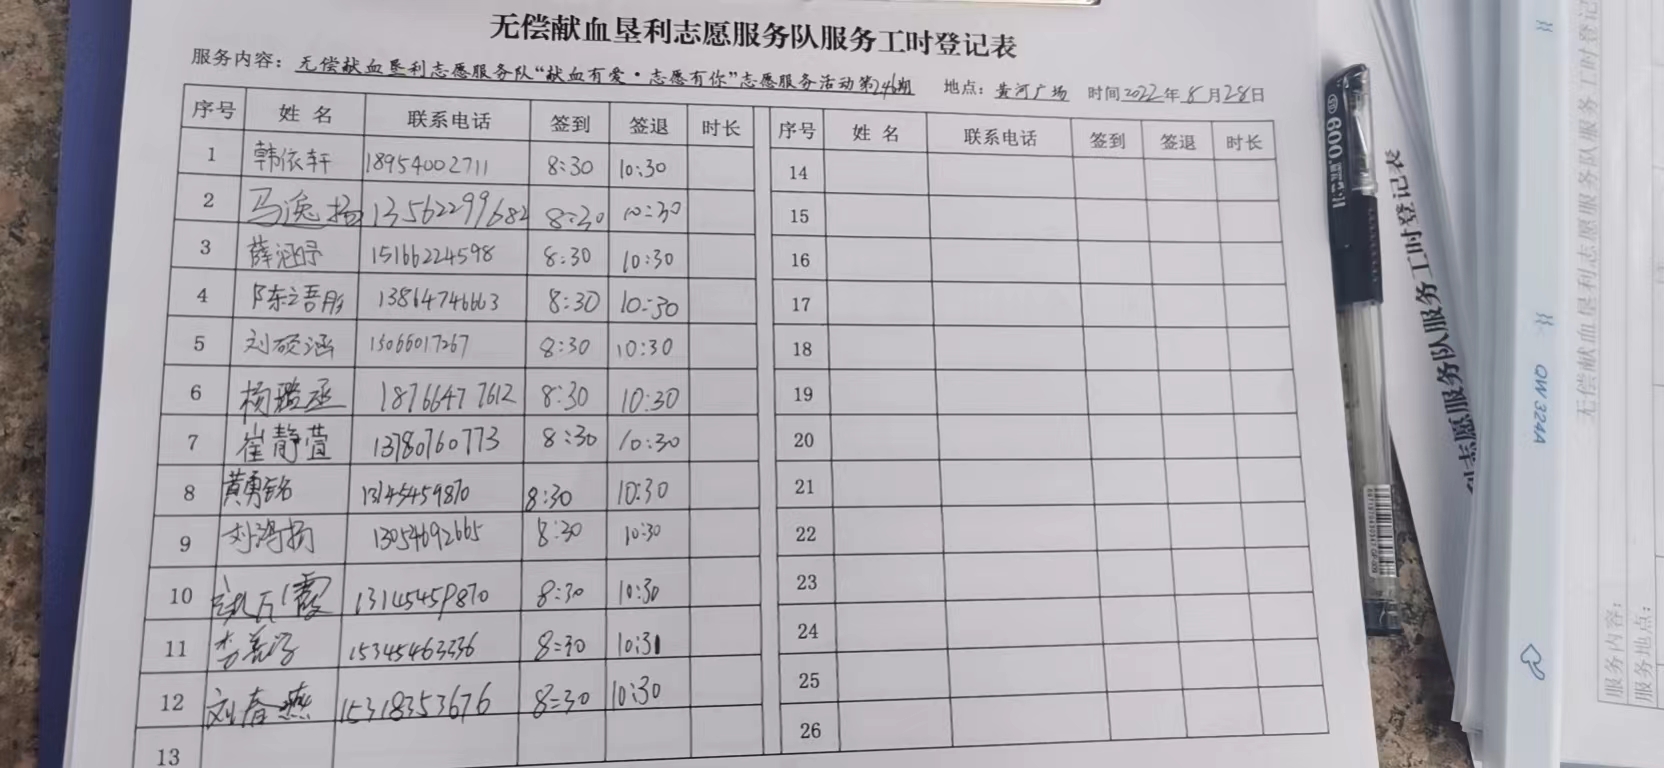 无偿献血垦利志愿服务队服务工时登记表
服务内容：无偿献血垦利志愿服务队“献血有爱·志愿有你”志愿服务活动第246期 地点：黄河广场 时间2022年8月28日
序号 姓名 联系电话 签到 签退 时长 序号 姓名 联系电话 签到 签退 时长
1 韩依轩 18954002711 8:30 10:30 14
2 马逸扬 13562299682 8:30 10:30 15
3 薛涵予 15166224598 8:30 10:30 16
4 陈之吾彤 13864746663 8:30 10:30 17
5 刘硕涵 15066017267 8:30 10:30 18
6 杨璐丞 18766477612 8:30 10:30 19
7 崔静萱 13780760773 8:30 10:30 20
8 黄勇铭 13145459870 8:30 10:30 21
9 刘鸿扬 13054692665 8:30 10:30 22
10 霞 13145459870 8:30 10:30 23
11 李 15345463336 8:30 10:31 24
12 刘春燕 15318353676 8:30 10:30 25
13 26
志愿服务队服务工时登记表
QW 324A
无偿献血垦利志愿服务队服务工时登记
服务内容：
服务地点：